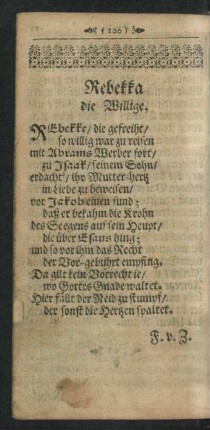 ( 100 )
Rebekka
die Willige.
REbekke / die gefreiht /
so willig war zu reisen
mit Abrams Werber fort /
zu Isaak / seinem Sohn /
erdacht / ihr Mutter-hertz
in Liebe zu beweisen /
vor Jakob einen fund ;
daß er bekahm die Krohn
des Seegens auf sein Heupt /
die über Esaus hing ;
und so vor ihm das Recht
der Vor-gebuhrt empfing.
Da gilt kein Vorrecht ie /
wo Gottes Gnade waltet.
Hier fällt der Neid zu stumpf /
der sonst die Hertzen spaltet.
F. v. Z.